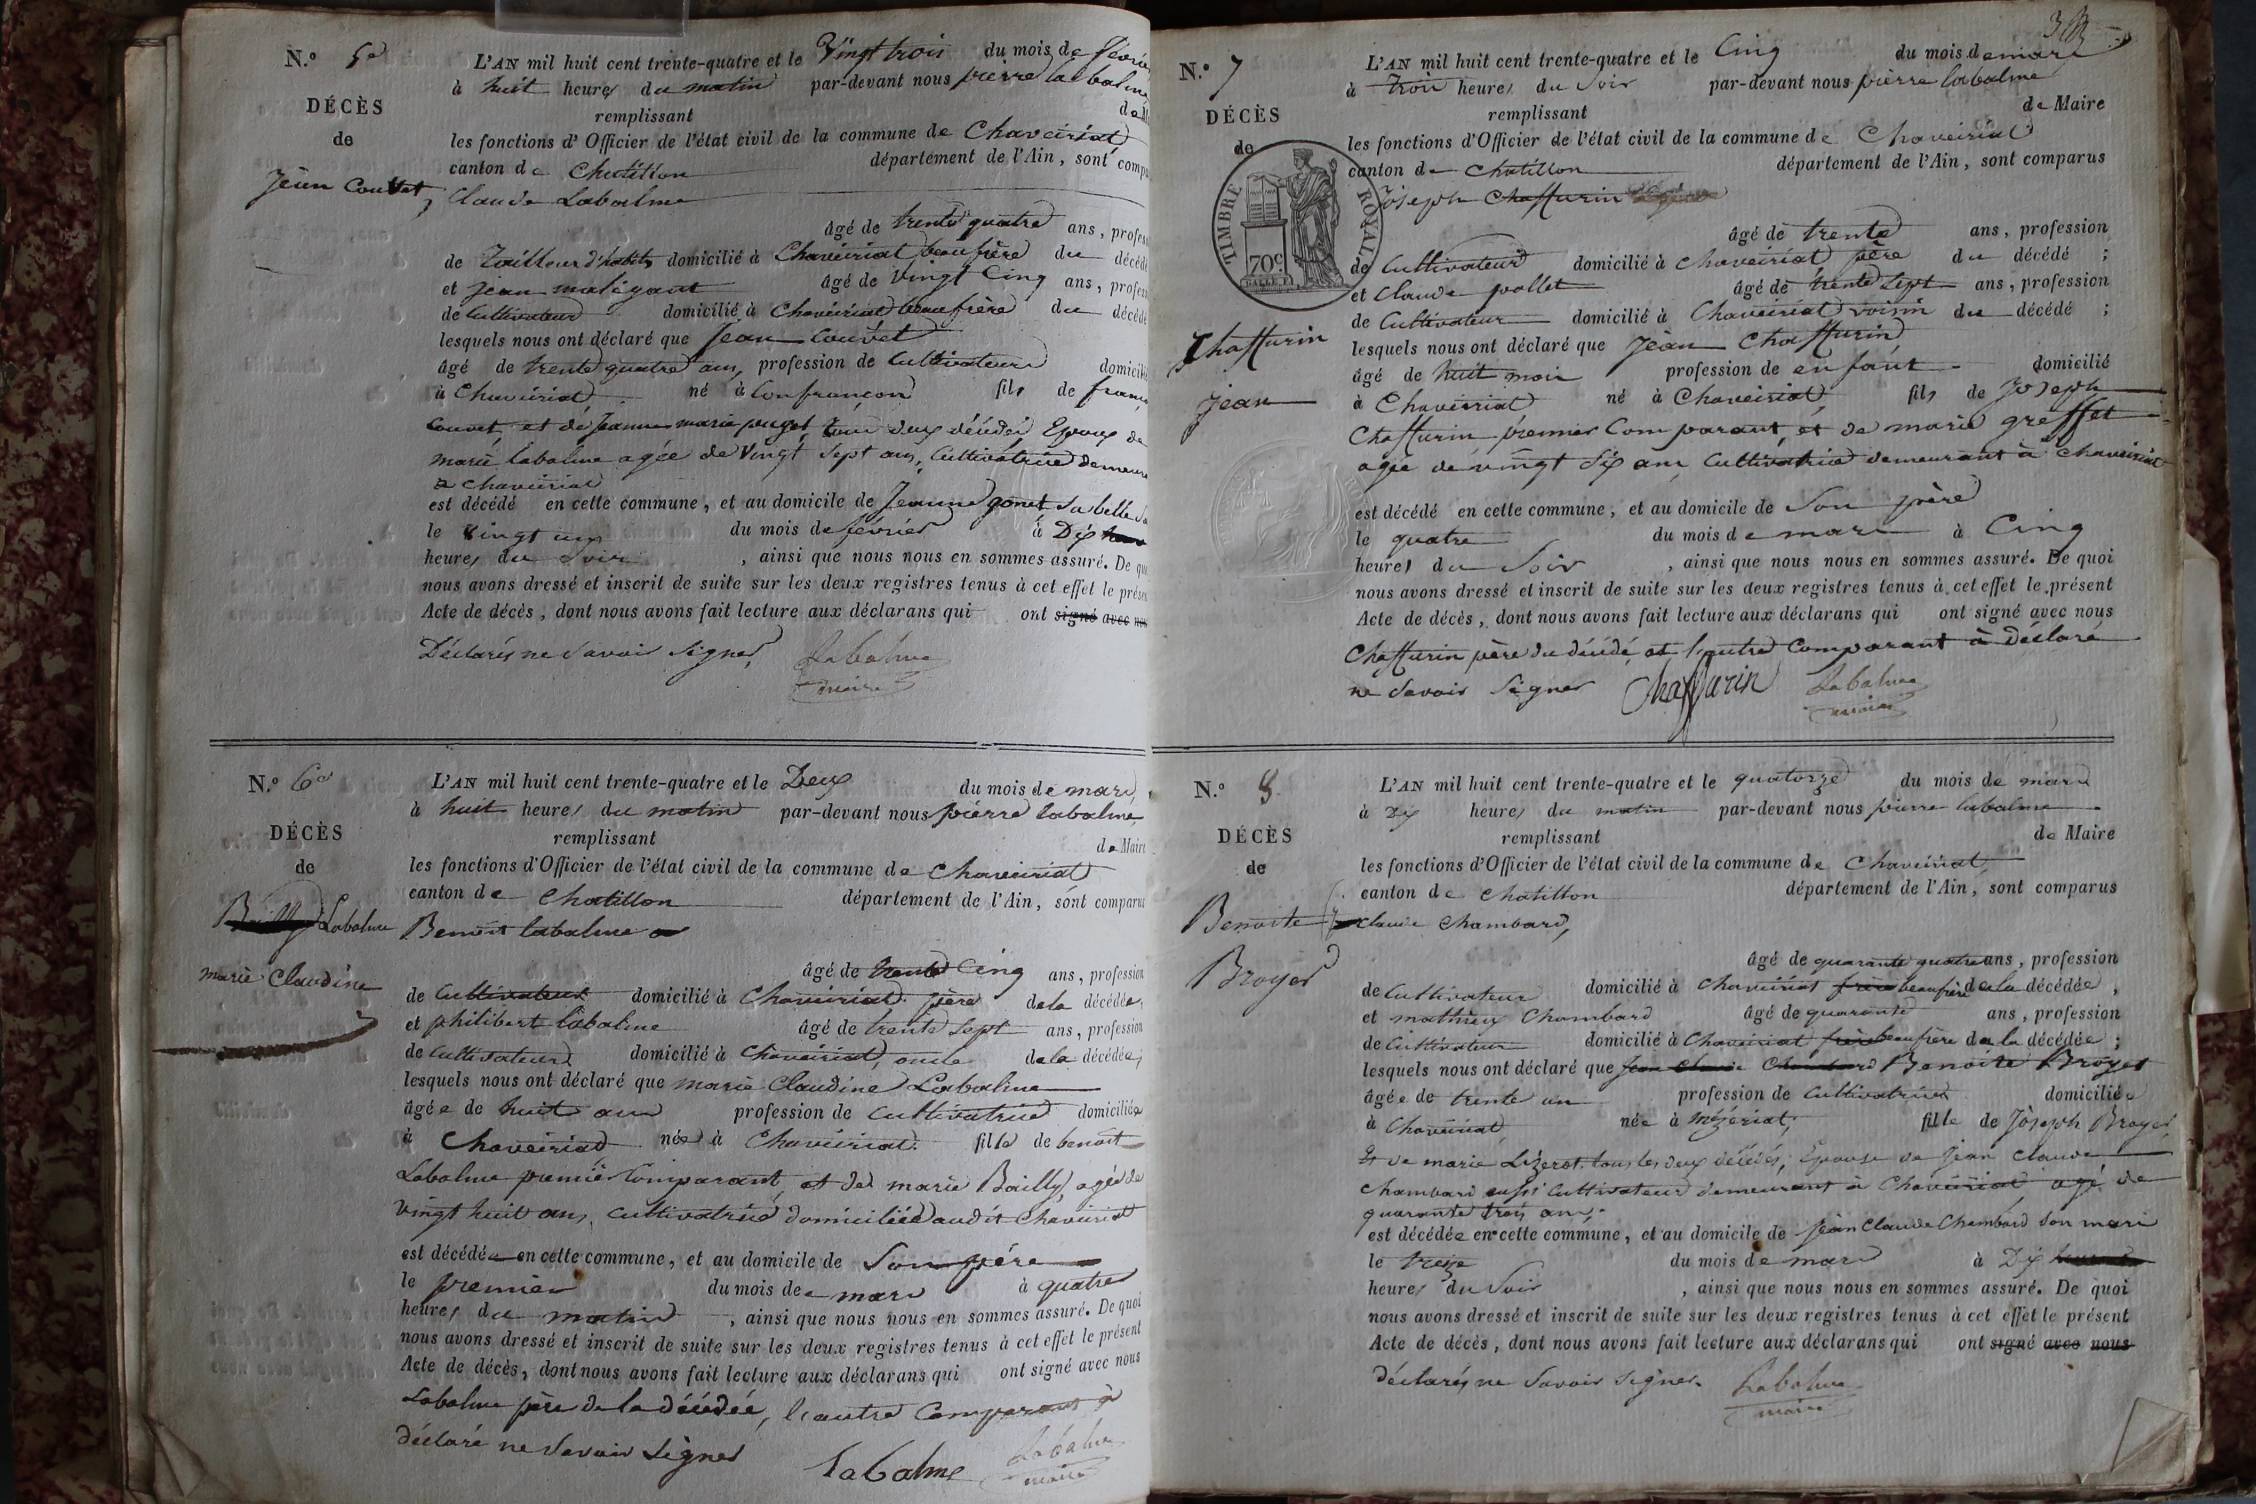 N.º 5e
DÉCÈS
de
Jean Couvet
L'AN mil huit cent trente-quatre et le Vingt trois du mois de
à huit heures du matin par-devant nous pierre labalme
remplissant
les fonctions d'Officier de l'état civil de la commune de Chaveiriat
canton de Chatillon département de l'Ain, sont
Claude Labalme
âgé de trente quatre ans,
de Tailleur d'habits domicilié à Chaveiriat beaufrère du
et jean maligant âgé de vingt Cinq ans,
de Cultivateur domicilié à Chaveiriat beaufrère du
lesquels nous ont déclaré que jean Couvet
âgé de trente quatre ans, profession de Cultivateur
à Chaveiriat né à Confrançon fils de
Couvet et de Jeanne marie puget tous deux décédés Epoux de
marie labalme agée de Vingt Sept ans, Cultivatrice
à Chaveiriat
est décédé en cette commune, et au domicile de Jeanne gonet Sa belle
le vingt un du mois de fevrier à Dix
heures du Soir, ainsi que nous nous en sommes assuré. De
nous avons dressé et inscrit de suite sur les deux registres tenus à cet effet le
Acte de décès, dont nous avons fait lecture aux déclarans qui ont signé avec
Déclarés ne Savoir Signer Labalme
maire
N.º 6e
DÉCÈS
de
Bailly Labalme
marie Claudine
L'AN mil huit cent trente-quatre et le Deux du mois de mars
à huit heures du matin par-devant nous pierre labalme
remplissant de Maire
les fonctions d'Officier de l'état civil de la commune de Chaveiriat
canton de Chatillon département de l'Ain, sont
Benoit labalme
âgé de trente Cinq ans, profession
de Cultivateur domicilié à Chaveiriat père de la décédée,
et philibert labalme âgé de trente Sept ans, profession
de Cultivateur domicilié à Chaveiriat, oncle de la décédée;
lesquels nous ont déclaré que marie Claudine Labalme
âgée de huit ans profession de Cultivatrice domiciliée
à Chaveiriat née à Chaveiriat. fille de benoit
Labalme premier Comparant, et de marie Bailly, agée de
vingt huit ans, Cultivatrice domiciliée audit Chaveiriat
est décédée en cette commune, et au domicile de Son père
le premier du mois de mars à quatre
heures du matin, ainsi que nous nous en sommes assuré. De quoi
nous avons dressé et inscrit de suite sur les deux registres tenus à cet effet le présent
Acte de décès, dont nous avons fait lecture aux déclarans qui ont signé avec nous
Labalme père de la décédée, l'autre Comparant à
déclaré ne Savoir Signer labalme Labalme
maire
N.º 7
DÉCÈS
de
TIMBRE ROYAL
70c
Chaffurin
jean
L'AN mil huit cent trente-quatre et le Cinq du mois de mars
à trois heures du Soir par-devant nous pierre labalme
remplissant de Maire
les fonctions d'Officier de l'état civil de la commune de Chaveiriat
canton de Chatillon département de l'Ain, sont comparus
Joseph Chaffurin
âgé de trente ans, profession
de Cultivateur domicilié à Chaveiriat père du décédé;
et Claude pollet âgé de trente Sept ans, profession
de Cultivateur domicilié à Chaveiriat voisin du décédé;
lesquels nous ont déclaré que Jean Chaffurin
âgé de huit mois profession de enfant domicilié
à Chaveiriat né à Chaveiriat, fils de Joseph
Chaffurin premier Comparant, et de marie greffet
agée de vingt Six ans Cultivatrice demeurant à Chaveiriat
est décédé en cette commune, et au domicile de Son père
le quatre du mois de mars à Cinq
heures du Soir, ainsi que nous nous en sommes assuré. De quoi
nous avons dressé et inscrit de suite sur les deux registres tenus à cet effet le présent
Acte de décès, dont nous avons fait lecture aux déclarans qui ont signé avec nous
Chaffurin père du décédé et l'autre Comparant à déclaré
ne Savoir Signer Chaffurin Labalme
maire
N.º 8
DÉCÈS
de
Benoite
Broyer
L'AN mil huit cent trente-quatre et le quatorze du mois de mars
à Dix heures du matin par-devant nous pierre labalme
remplissant de Maire
les fonctions d'Officier de l'état civil de la commune de Chaveiriat,
canton de Chatillon département de l'Ain, sont comparus
Claude Chambard,
âgé de quarante quatre ans, profession
de Cultivateur domicilié à Chaveiriat frère beaufrère de la décédée,
et mathieu Chambard âgé de quarante ans, profession
de Cultivateur domicilié à Chaveiriat frère beaufrère de la décédée;
lesquels nous ont déclaré que Jean Claude Chambard Benoite Broyer
âgée de trente un profession de Cultivatrice domiciliée
à Chaveiriat, née à Mézériat, fille de Joseph Broyer,
Et de marie Lizerot tous les deux décédés, Epouse de Jean Claude
Chambard aussi Cultivateur demeurant à Chaveiriat agé de
quarante trois ans,
est décédée en cette commune, et au domicile de jean Claude Chambard Son mari
le treize du mois de mars à Dix
heures du Soir, ainsi que nous nous en sommes assuré. De quoi
nous avons dressé et inscrit de suite sur les deux registres tenus à cet effet le présent
Acte de décès, dont nous avons fait lecture aux déclarans qui ont signé avec nous
déclarés ne Savoir Signer. Labalme
maire